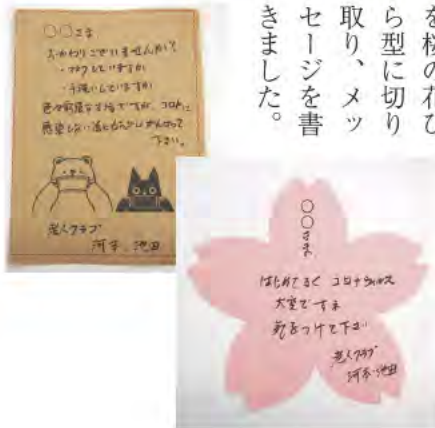 を桜の花び
ら型に切り
取り、メッ
セージを書
きました。
○○さま
おかわりございませんか?
・マスクしていますか
・手洗いしていますか
色々窮屈な生活ですが、コロナに
感染しない様におたがいがんばって
下さい。
老人クラブ
河本 池田
○○さま
はじめてきく コロナウィルス
大変ですネ
気をつけて下さい
老人クラブ
河本・池田